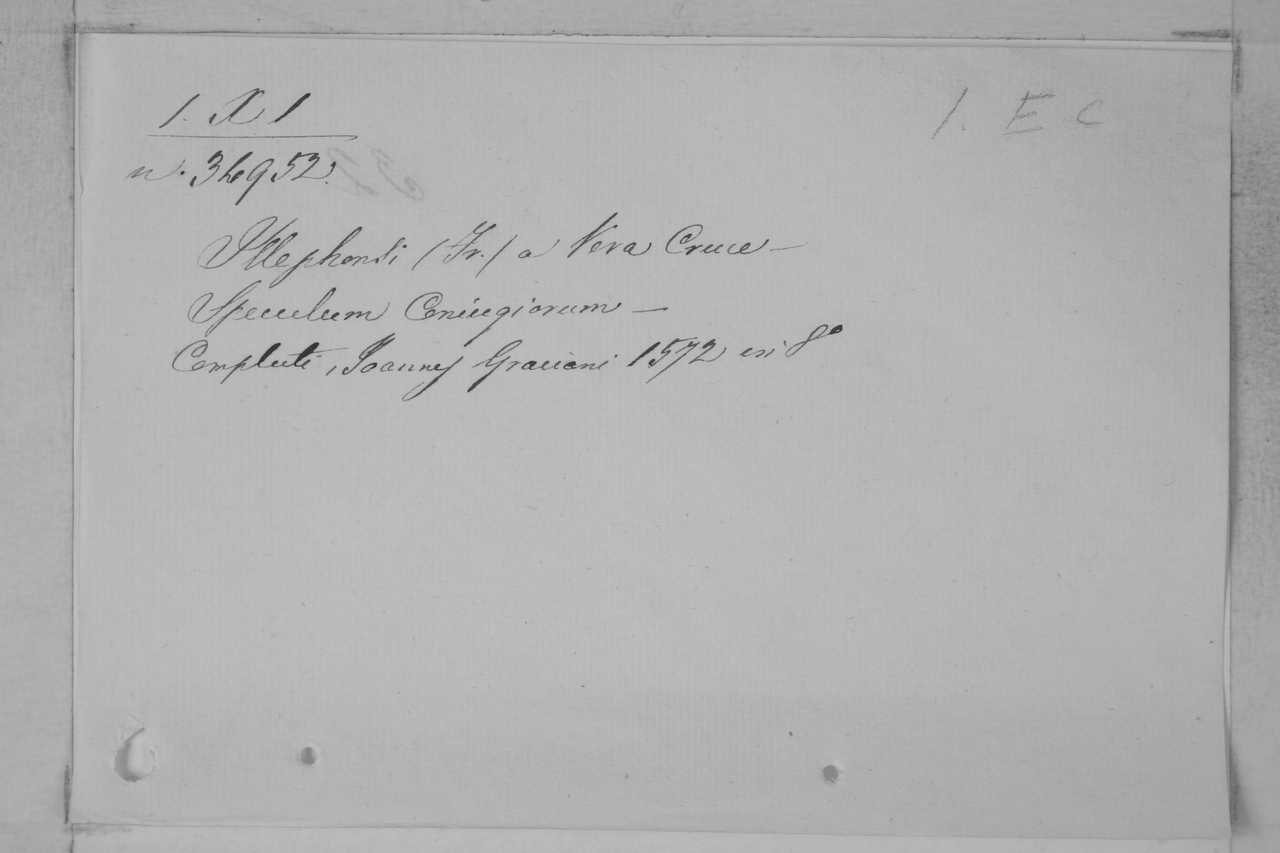 1. X 1
1. E C
n. 34952.
Illephonsi (Fr.) a Vera Cruce —
Speculum Coniugiorum —
Compluti, Joannes Graciani 1572 in 8º